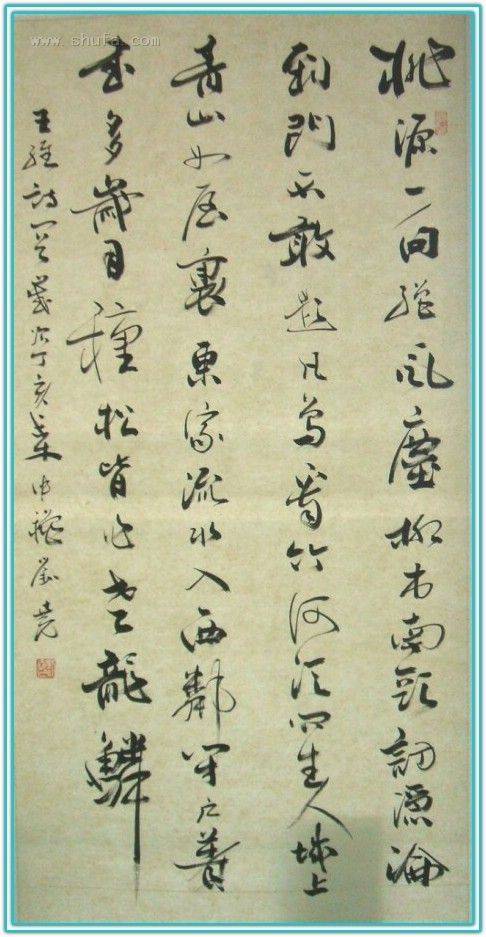 www.shufa.com
桃源一向絕風塵柳市南頭訪隱淪
到門不敢題凡鳥看竹何須問主人城上
青山如屋裏東家流水入西鄰閉戶著
書多歲月種松皆作老龍鱗
王維詩一首歲次丁亥年中穐